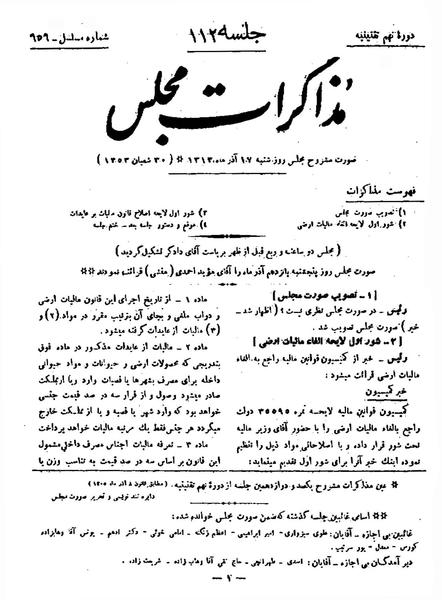 دورهٔ نهم تقنینیه
جلسه ۱۱۲
شماره مسلسل - ۹۵۹
مذاکرات مجلس
صورت مشروح مجلس روز شنبه ۱۷ آذر ماه ۱۳۱۳ * (۳۰ شعبان ۱۳۵۳)
فهرست مذاکرات
۱) تصویب صورت مجلس
۲) شور اول لایحه الغاء مالیات ارضی
۳) شور اول لایحه اصلاح قانون مالیات بر عایدات
۴) موقع و دستور جلسه بعد - ختم جلسه
(مجلس دو ساعت و ربع قبل از ظهر بریاست آقای دادگر تشکیل گردید)
صورت مجلس روز پنجشنبه پانزدهم آذر ماه را آقای مؤید احمدی (منشی) قرائت نمودند
[۱ - تصویب صورت مجلس]
رئیس - در صورت مجلس نظری نیست؟ (اظهار شد -
خیر) صورت مجلس تصویب شد.
[۲ - شور اول لایحه الغاء مالیات ارضی]
رئیس - خبر از کمیسیون قوانین مالیه راجع به الغاء
مالیات ارضی قرائت میشود:
خبر کمیسیون
کمیسیون قوانین مالیه لایحه نمره ۳۵۵۹۵ دولت
راجع بالغاء مالیات ارضی را با حضور آقای وزیر مالیه
تحت شور قرار داده و با اصلاحاتی مواد ذیل را تنظیم
نموده اینك خبر آنرا برای شور اول تقدیم مینماید:
ماده ۱ - از تاریخ اجرای این قانون مالیات ارضی
و دواب ملغی و بجای آن بترتیب مقرر در مواد (۲) و
(۳) مالیات از عایدات گرفته میشود.
ماده ۲ - مالیات از عایدات مذکور در ماده فوق
بتدریجی که محصولات ارضی و حیوانات و مواد حیوانی
داخله برای مصرف بشهرها یا قصبات وارد و یا از مملکت
صادر میشود وصول و از قرار سه در صد قیمت جنسی
خواهد بود که وارد شهر یا قصبه و یا از مملکت خارج
میگردد هر جنس فقط یك مرتبه مالیات خواهد پرداخت
ماده ۳ - تعرفه مالیات اجناس مصرف داخلی مشمول
این قانون بر اساس سه در صد قیمت به تناسب وزن یا
* عین مذاکرات مشروح یکصد و دوازدهمین جلسه از دوره نهم تقنینیه. (مطابق قانون ۸ آذر ماه ۱۳۰۵)
دایره تند نویسی و تحریر صورت مجلس
** اسامی غائبین جلسه گذشته که ضمن صورت مجلس خوانده شده:
غائبین بی اجازه - آقایان: علوی سبزواری - امیر ابراهیمی - اعظم زنگنه - امامی خوئی - دکتر ادهم - یونس آقا وهابزاده
کورس - معدل - پور سرتیپ.
دیر آمدگان بی اجازه - آقایان: اسدی - طهرانچی - حاج تقی آقا وهاب زاده - شریعت زاده.
- ۱ -